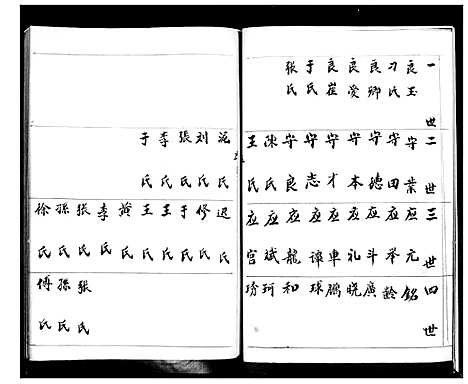 一世
良玉
刁氏
良卿
良爱
良崔
于氏
張氏
二世
守業
守田
守德
守本
守才
守志
守良
陳氏
王氏
范氏
刘氏
張氏
李氏
于氏
三世
应元
应举
应斗
应礼
应車
应譚
应龍
应斌
应宫
遲氏
修氏
于氏
王氏
王氏
黄氏
李氏
張氏
孫氏
徐氏
四世
銘
齡
廣
曉
鵬
球
和
珂
琇
張氏
孫氏
傅氏